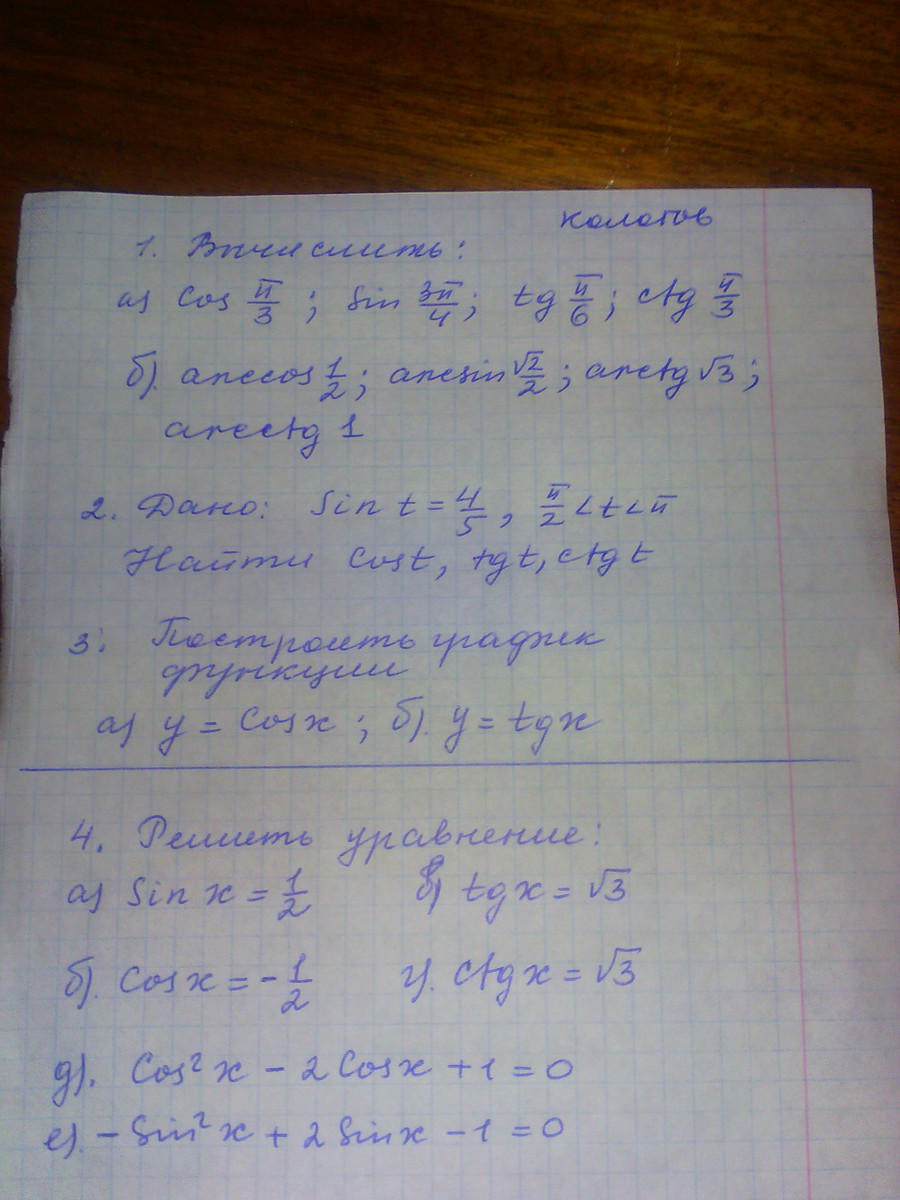 Колотов
1. Вычислить:
а) Cos π/3 ; Sin 3π/4 ; tg π/6 ; ctg π/3
б). arccos 1/2 ; arcsin √2/2 ; arctg √3 ;
arcctg 1
2. Дано: Sin t = 4/5 , π/2 < t < π
Найти Cos t, tg t, ctg t
3. Построить график
функции
а) y = Cos x ; б). y = tg x
4. Решить уравнение:
а) Sin x = 1/2 в) tg x = √3
б). Cos x = - 1/2 г). ctg x = √3
д). Cos² x - 2 Cos x + 1 = 0
е). - Sin² x + 2 Sin x - 1 = 0